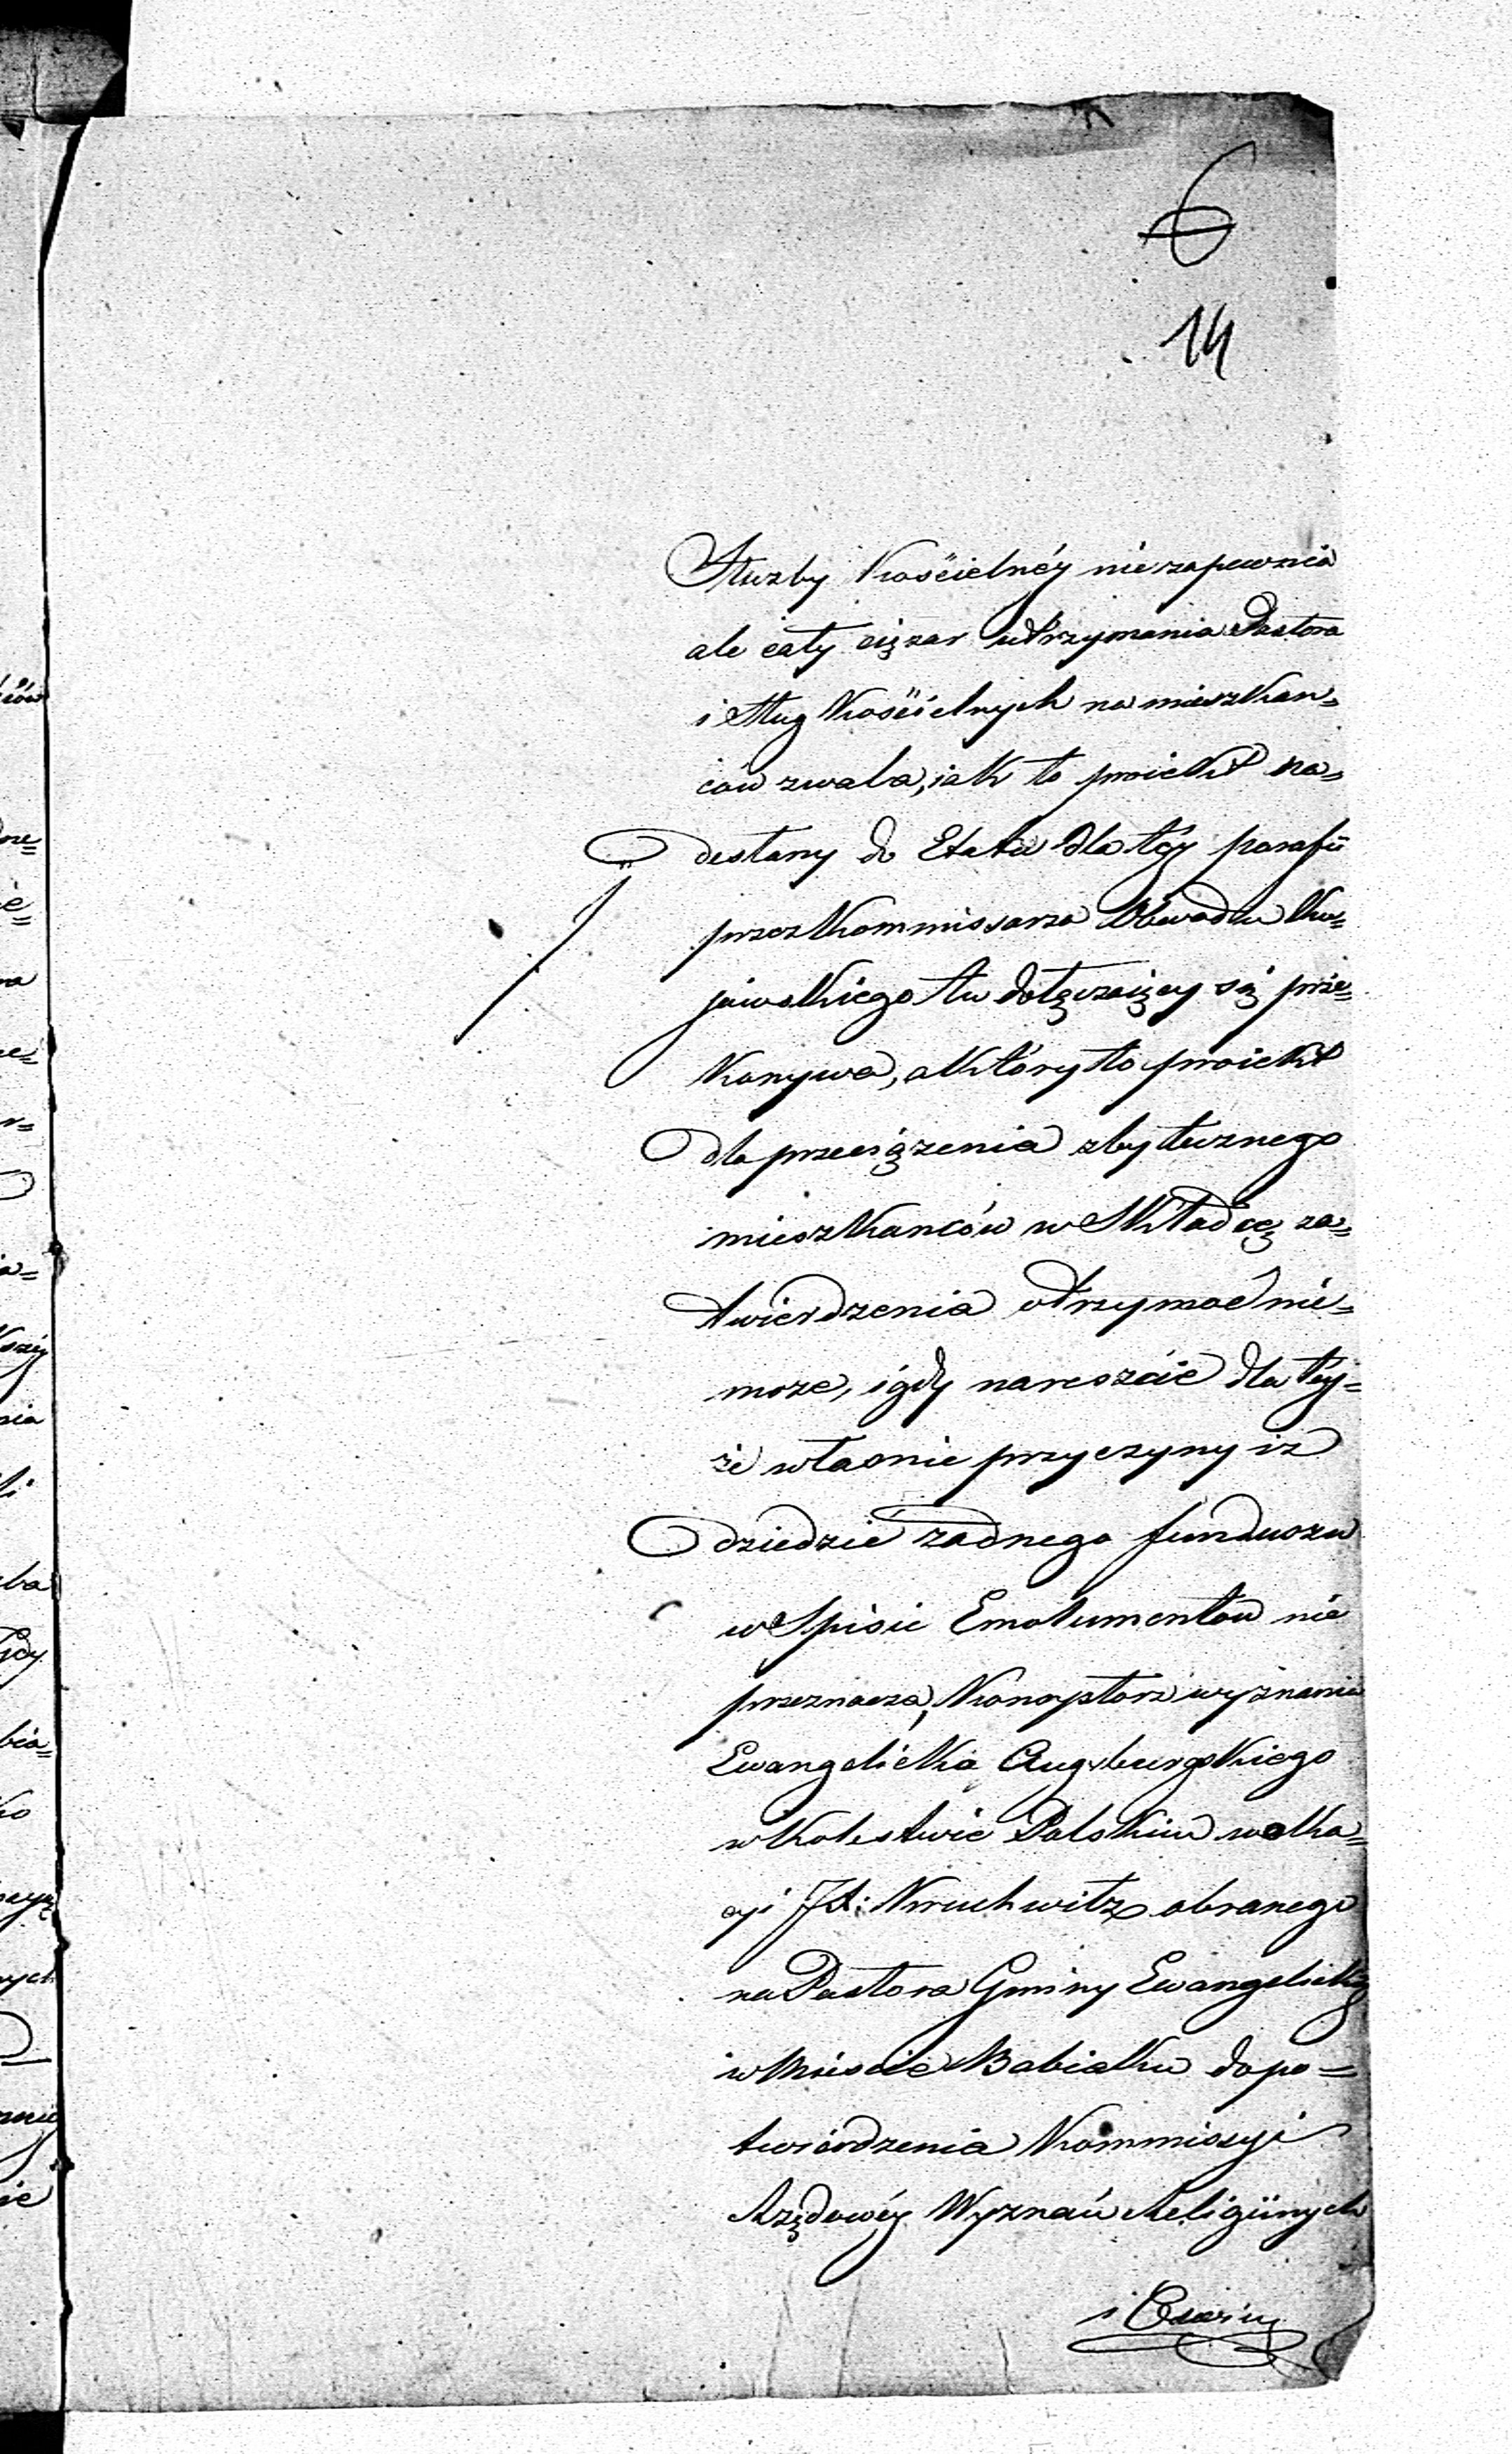 6
14
Służby Kościelnéy nie zapewnia
ale cały ciężar utrzymania Pastora
i Sług Kościelnych na mieszkań=
ców zwala, jak to proiekt na=
desłany do Etatu dla téy parafii
przez Kommissarza Obwodu Ku=
jawskiego tu dołączaiący się prze=
konywa, a który to proiekt
dla przeciążenia zbytecznego
mieszkańców w Składcę za=
twierdzenia otrzymać nie=
może, i gdy nareszcie dla téy=
że własnie przyczyny iż
dziedzic żadnego funduszu
w Spisie Emolumentów nie
przeznacza, Konsystorz wyznania
Ewangelicko Augsburgskiego
w Kolestwie Polskim woka=
cyi JX: Kruchwitz obranego
na Pastora Gminy Ewangelickiéy
w Mieście Babiaku do po=
twierdzenia Kommissyi
Rządowéy Wyznań Religiinych
i Oświec